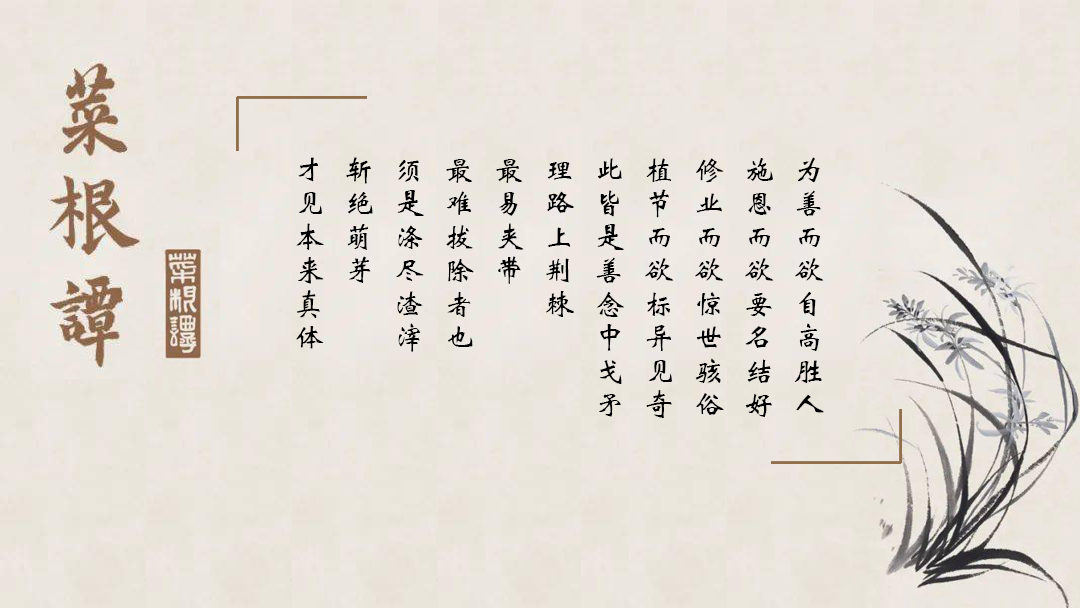 菜根譚
菜根譚
为善而欲自高胜人
施恩而欲要名结好
修业而欲惊世骇俗
植节而欲标异见奇
此皆是善念中戈矛
理路上荆棘
最易夹带
最难拔除者也
须是涤尽渣滓
斩绝萌芽
才见本来真体